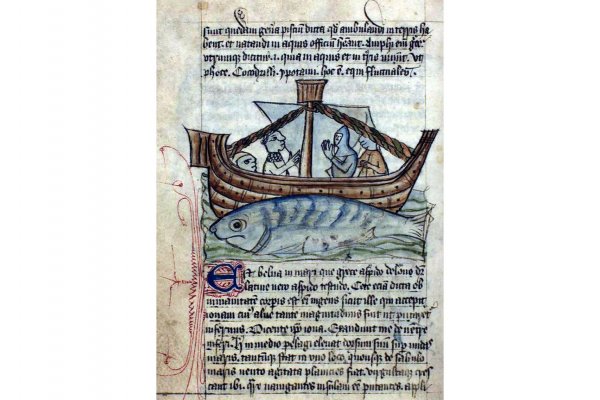 sunt quedam gen̄a pisciū dicta qd ambulandi in terris ha
bent. et natandi in aquis officiū hēant. Amphi em̄
utrumque dicitur .i. quia in aquis et in t̄ris uiuūt. vt
phoce. Cocodrilli. ypotami. hoc ē. equi fluctuales.
Est belua in mari que grece aspido delone dr̄
latine uero aspido testudo. Cete etiā dicta ob
inmanitatem corpis est eī ingens sicut ille qui accepit
ionam cui' alue tante magnitudinis fuit ut putaret
infernus. Dicente ip̄o iona. Exaudiuit me de uentre
inferi. in medio pelagi eleuat dorsum suū sup̄ undas
maris. tantumqȝ stat in uno loco. quousqȝ de sabulo
maris uento agitata planicies fiat. virgultaqȝ cres
cant ibi. Qre nauigantes insulam eē putantes. appli